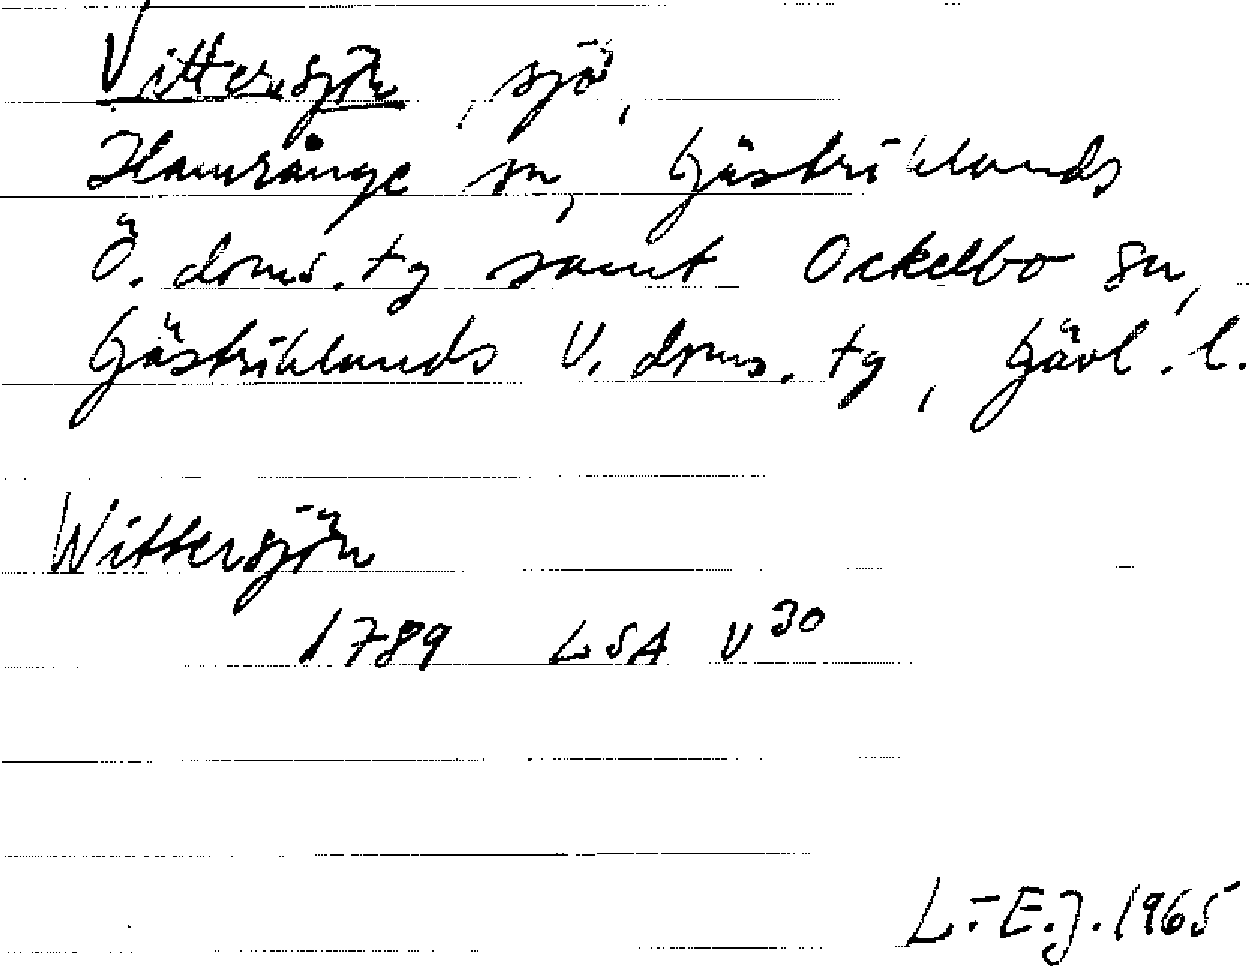 Vittersjön, sjö,
Hamrånge sn, Gästriklands
Ö. doms. tg samt Ockelbo sn,
Gästriklands V. doms. tg, Gävl. l.
Wittersjön
1789 LSA V30
L.-E.J. 1965